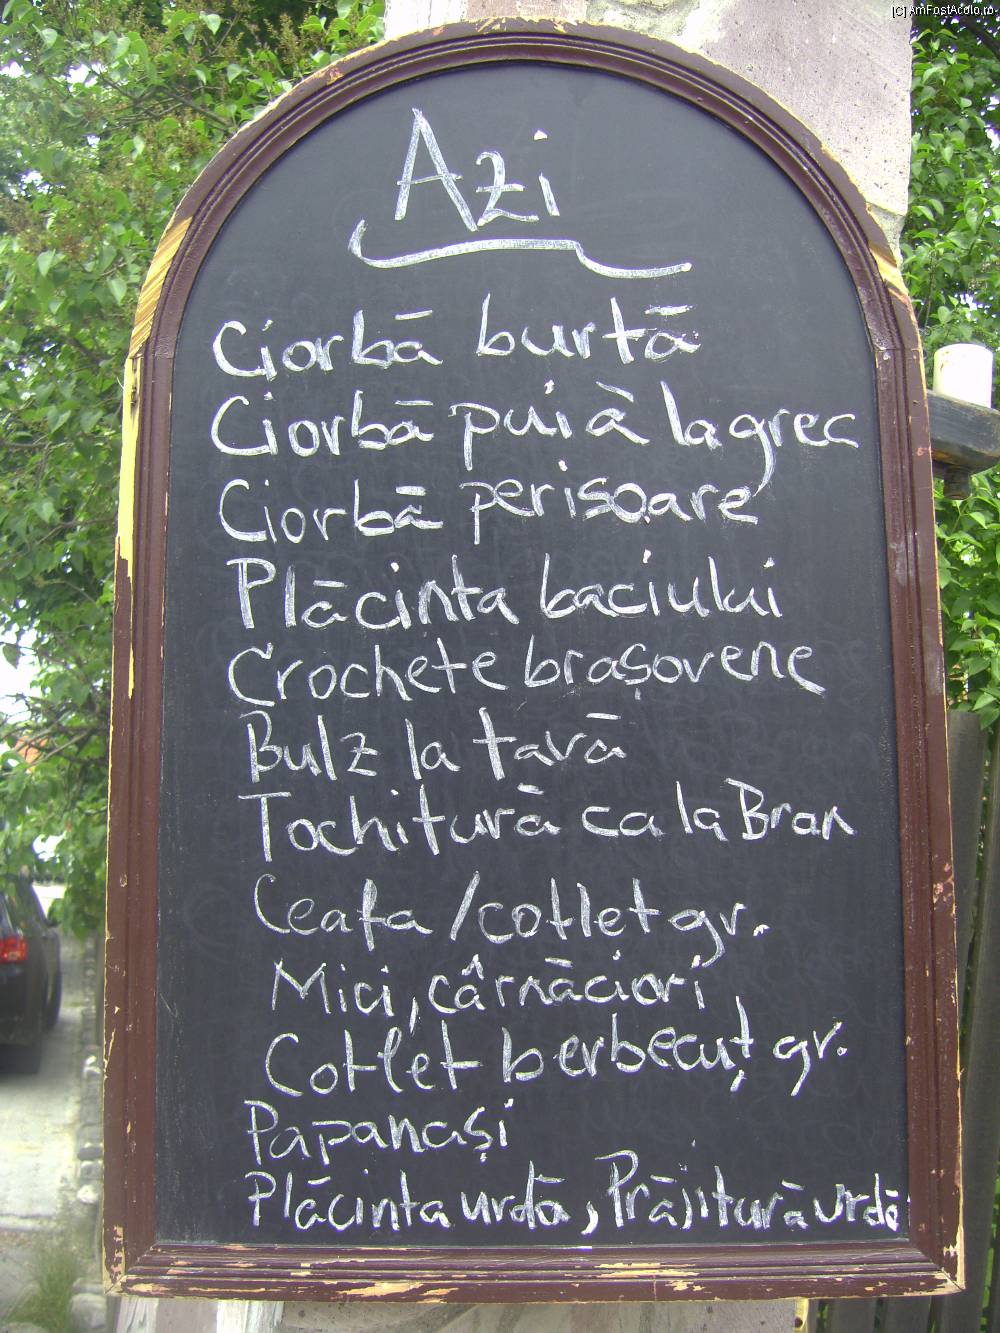 [C] AmFostAcolo.ro
Azi
Ciorbă burtă
Ciorbă pui à la grec
Ciorbă perisoare
Plăcinta baciului
Crochete brașovene
Bulz la tavă
Tochitură ca la Bran
Ceafa / cotlet gr.
Mici, cârnăciori,
Cotlet berbecuț gr.
Papanași
Plăcinta urdă, Prăjitură urdă